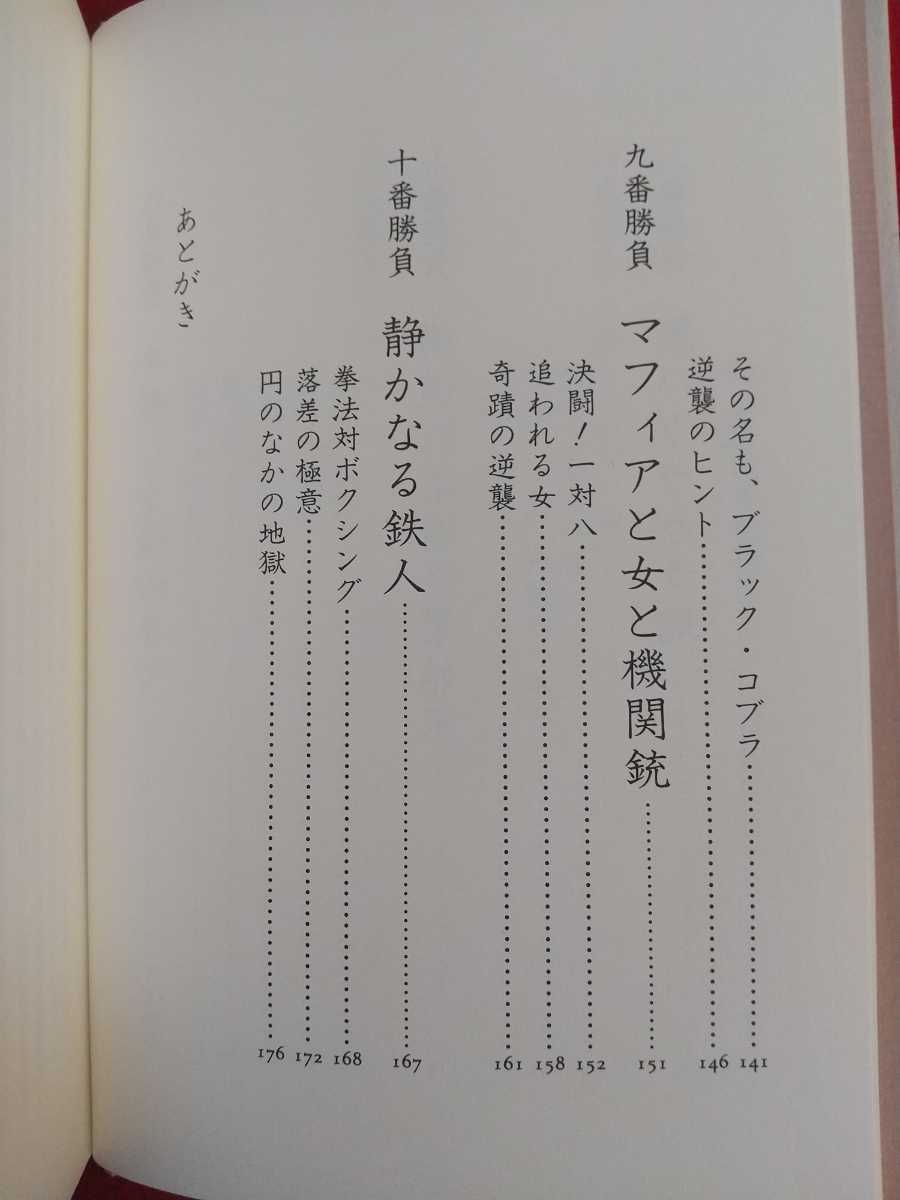 その名も、ブラック・コブラ……………………141
逆襲のヒント……………………146
九番勝負 マフィアと女と機関銃……………………151
決闘!一対八……………………152
追われる女……………………158
奇蹟の逆襲……………………161
十番勝負 静かなる鉄人……………………167
拳法対ボクシング……………………168
落差の極意……………………172
円のなかの地獄……………………176
あとがき